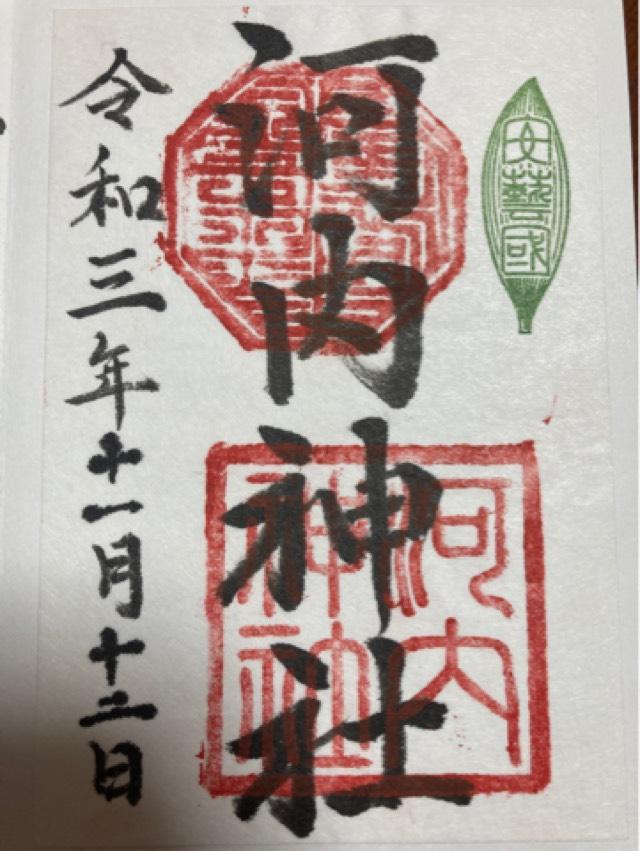 文藝國
河内神社
河内
神社
令和三年十一月十二日